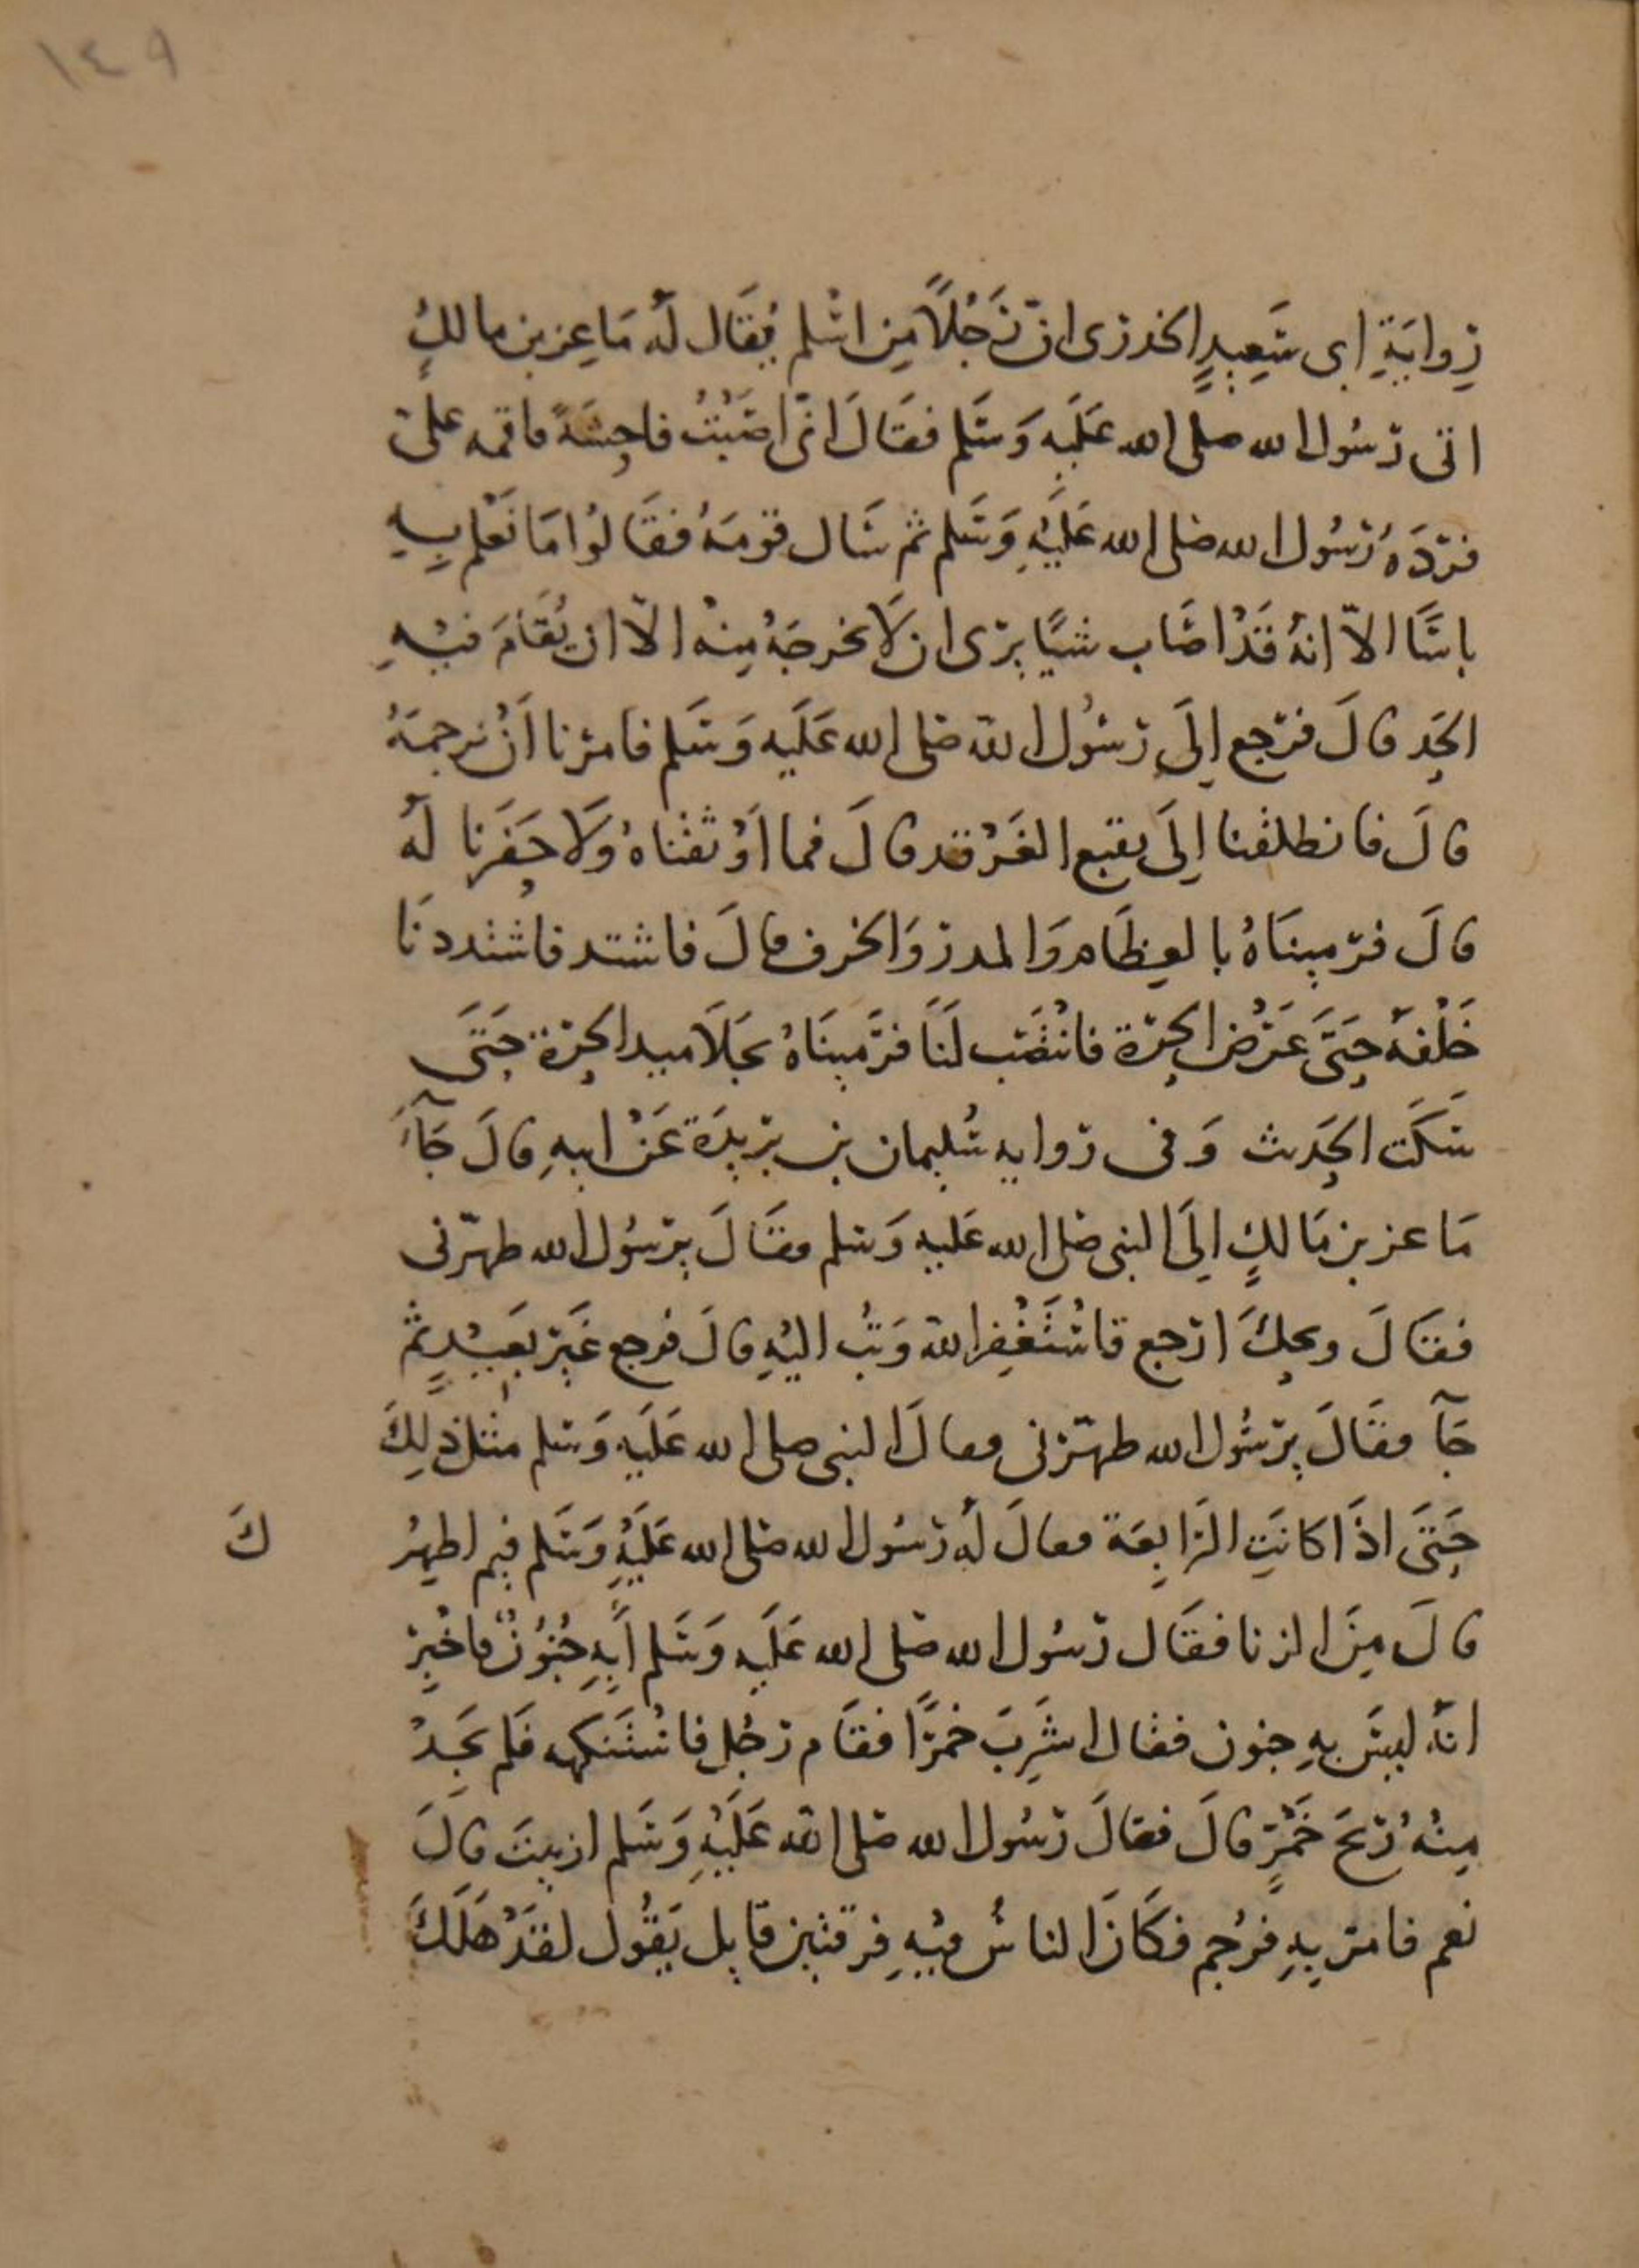 ١٤٩
رِوايَةِ ابى سَعِيدٍ الخدرى انّ رَجُلاً مِن اسْلم يُقَال لَه مَاعِز بن مالكٍ
اتى رَسُول الله صلى الله عَلَيهِ وَسَلم فقَالَ انّى اصَبْتُ فاحِشَةً فاقمه علىّ
فردَهُ رَسُول الله صَلى الله عَلَيْهِ وَسَلم ثم سَال قومَهُ فقَالوُا مَا نَعْلم بِهِ
باسًا الاّ انهُ قَدْ اصَاب شيًا يرى ان لَا يخرجَهُ مِنْه الاّ ان يُقَامَ فيْهِ
الحَد قالَ فرَجع اِلَى رَسُول الله صَلى الله عَلَيهِ وَسَلم فامرنا اَنْ نرجمَهُ
قالَ فانطلقنا اِلَى بقيع الغَرْقد قالَ فما اَوْثقْناهُ وَلَا حَفَرنا لَهُ
قالَ فرَمينَاهُ بالعِظَام وَالمدر وَالخزف قالَ فاشتد فاشتددنَا
خَلْفهُ حَتَّى عَرْض الحَرّة فانْتصَب لَنَا فرَمينَاهُ بجَلَاميد الحَرّة حَتَى
سَكَت الحَديث وَفى رواية سُليمان بن بريدَة عَنْ ابيهِ قالَ جَآءَ
مَاعز بن مَالكٍ اِلَى النبى صَلى الله عَليهِ وَسَلم فقَالَ يرَسُول الله طهّرنى
فقَالَ ويحكَ ارجع فاسْتَغْفِر الله وَتُب اليْهِ قالَ فرجع غَيرَ بَعيْدٍ ثم
جَآ فقَالَ يرَسُول الله طهّرنى فقالَ النبى صلى الله عَلَيهِ وَسَلم مثل ذلِكَ
حَتَى اذَا كانَتِ الرَابِعَة فقالَ لَهُ رَسُول الله صَلى الله عَلَيْهِ وَسَلم فِيم اطهِرُ
كَ
قالَ مِنَ الزنا فقَال رَسُول الله صَلى الله عَلَيهِ وَسَلم اَبِهِ جُنُونٌ فاخْبِر
انهُ ليسَ بهِ جنون فقال اشَرِبَ خمرًا فقَام رَجُل فاسْتَنكهه فلم يَجِدْ
مِنْهُ رِيحَ خَمْرٍ قالَ فقالَ رَسُول الله صَلى الله عَلَيْهِ وَسَلم ازنيتَ قالَ
نعم فامرَ بِهِ فرُجم فكَانَ الناسُ فيْهِ فِرقتين قايل يَقُول لقَدْ هَلَكَ